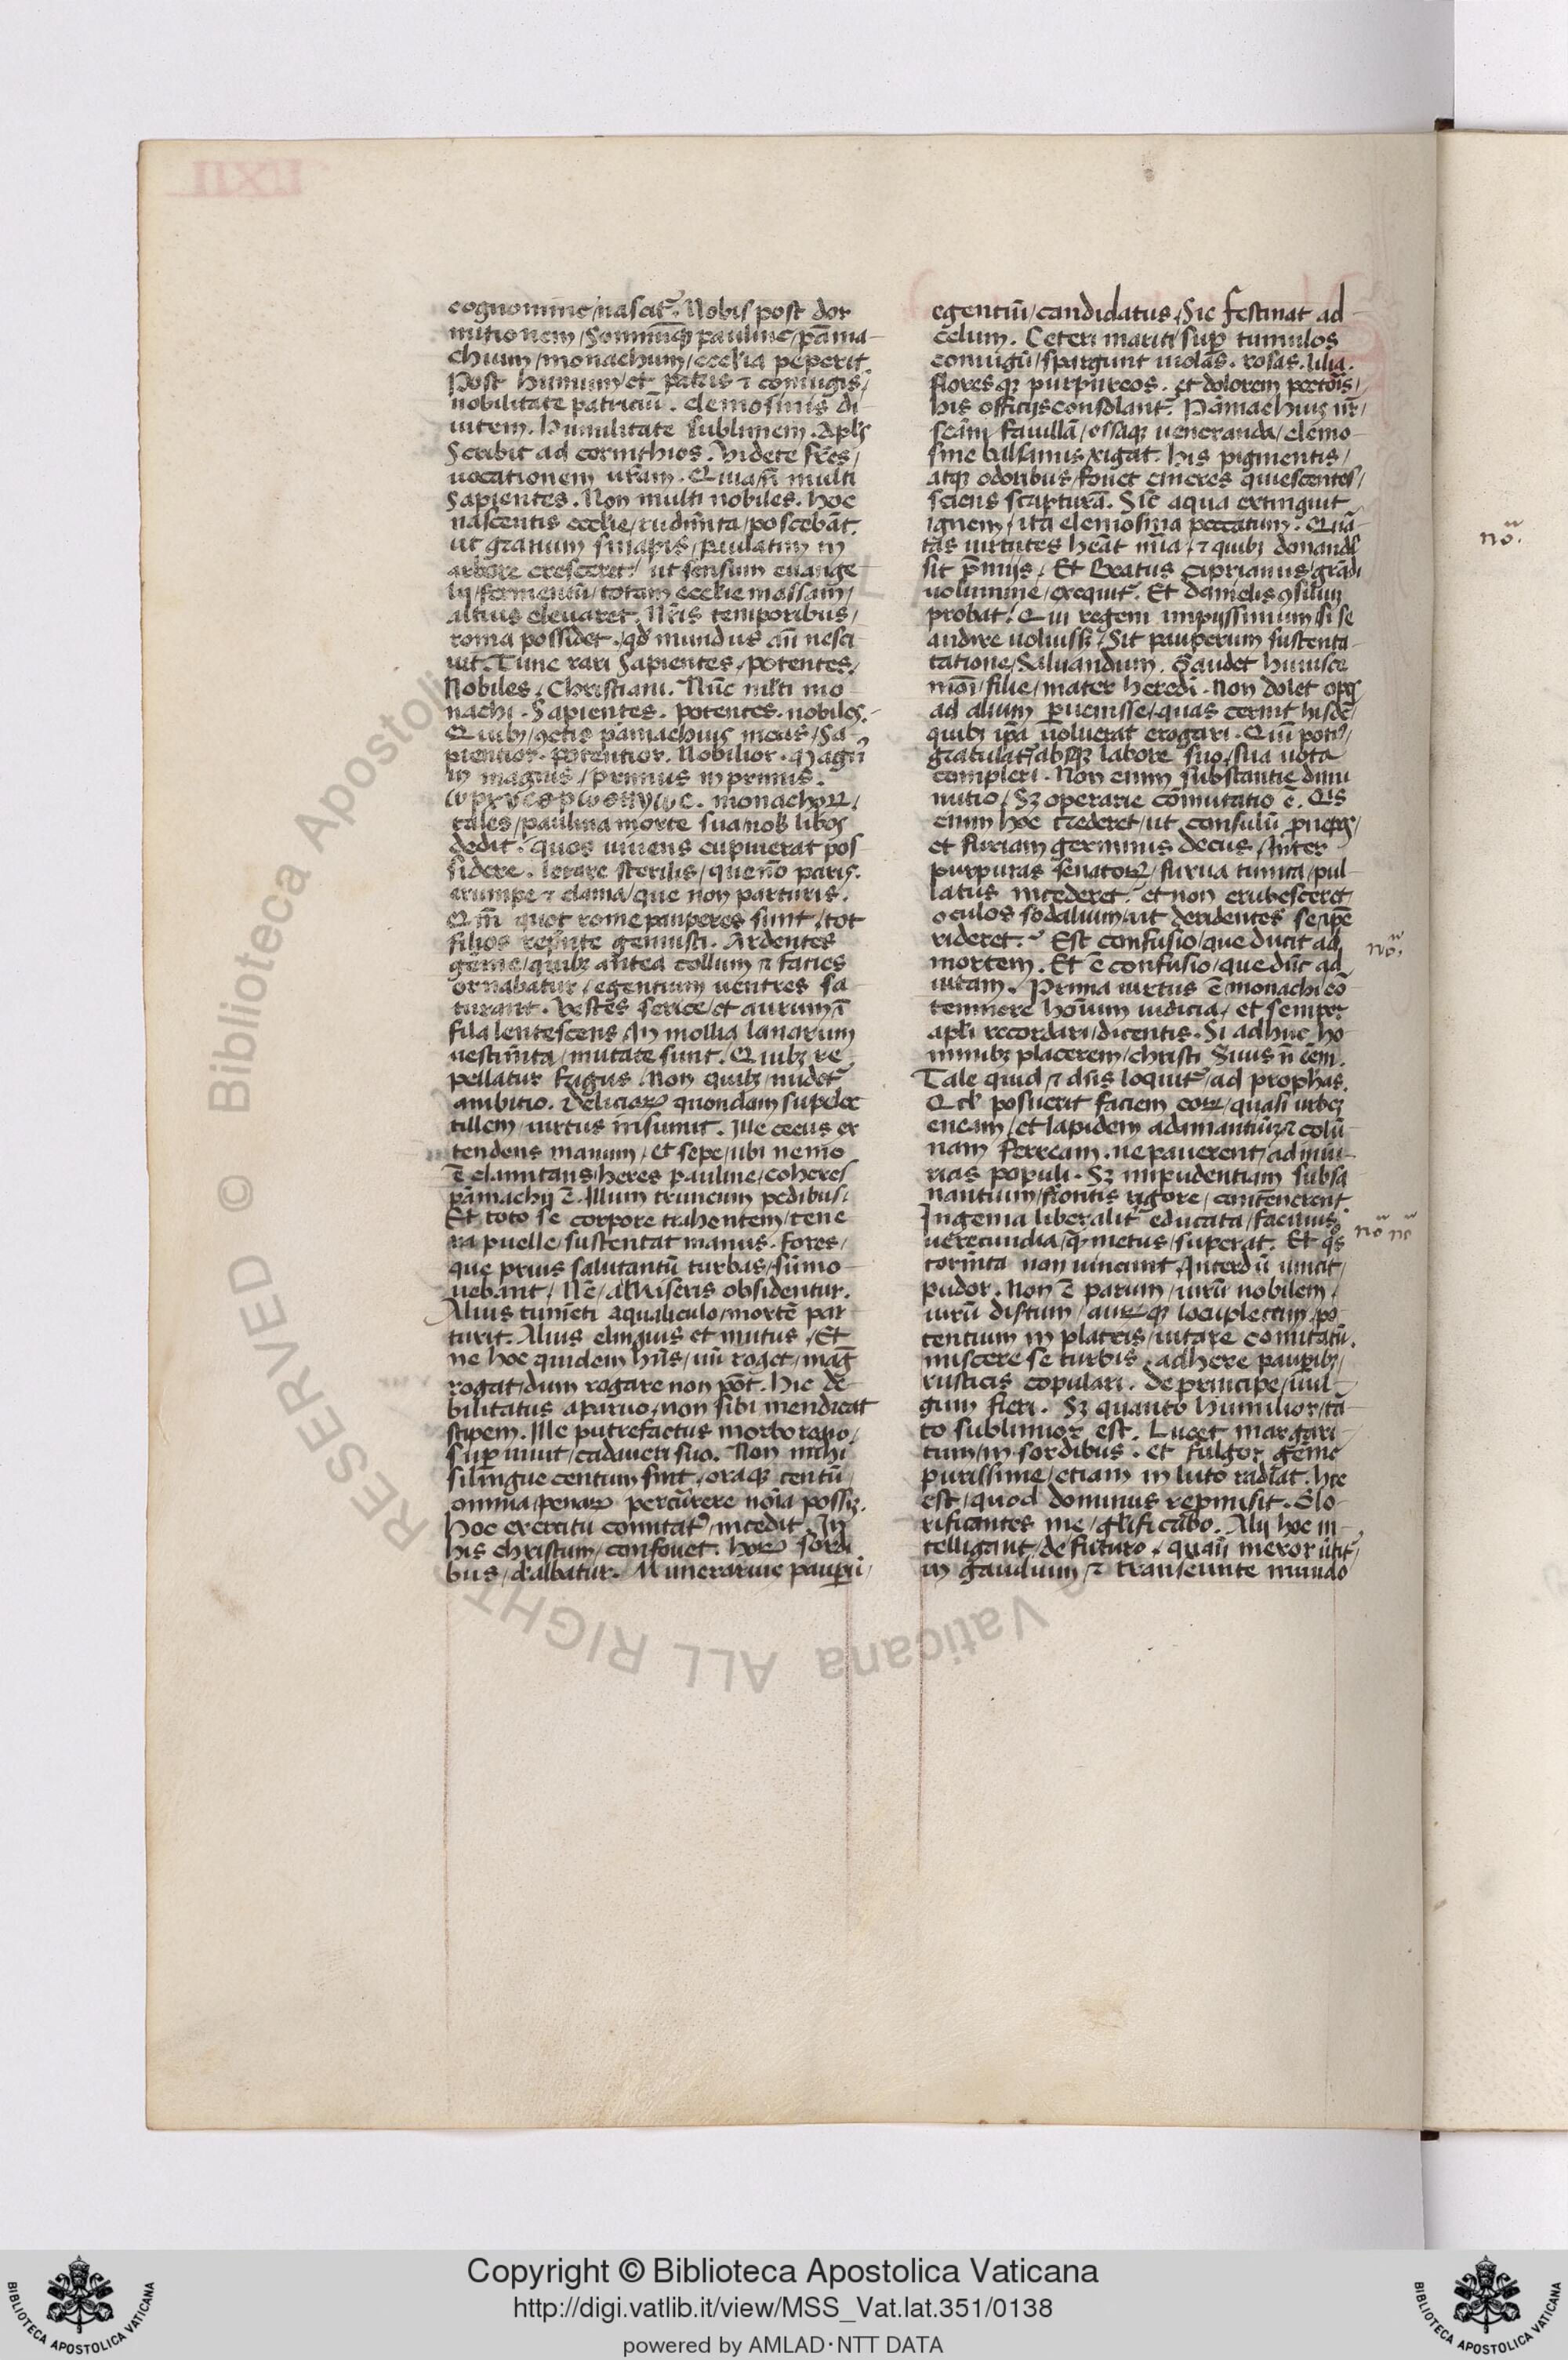 LXII
cognomine / nascit᷒. Nobis post dor
mitionem / Somniũq̃ pauline / pãma-
chium / monachum / eccl̃ia peperit
Post humum / et patris ⁊ coniugis /
nobilitate patriciũ. elemosinis di-
uitem. humilitate sublimem. Apl̃s
Scribit ad corinthios. Videte fr̃es /
uocationem ur̃am. Quia / ñ multi
Sapientes. Non multi nobiles. hoc
nascentis eccl̃ie / rudim̃ta / poscebãt.
ut granum sinapis / paulatim in
arbore cresceret / ut sensim euange-
lij / fermentũ / totam eccl̃ie massam /
altius eleuaret. Nr̃is temporibus /
roma possidet. qd̃ mundus añ nesci-
uit. Tunc rari Sapientes / potentes /
Nobiles / Christiani. Nũc ml̃ti mo-
nachi. Sapientes. potentes. nobiles.
Quibꝫ / cũctis pãmachius meus / Sa-
pientior. potentior. Nobilior. Magñ
in magnis / primus in primis.
monachoꝝ /
tales / paulina morte sua / nob̃ lib̃os
dedit. quos uiuens cupiuerat pos-
sidere. letare sterilis / que nõ paris.
erumpe ⁊ clama / que non parturis.
Qm̃ quot rome pauperes sunt / tot
filios repente genuisti. Ardentes
gẽme / quibꝫ antea collum ⁊ facies
ornabatur / egentium uentres sa-
turant. Vestes serice / et aurum ĩ
fila lentescens / In mollia lanarum
uestim̃ta / mutate sunt. Quibꝫ re-
pellatur frigus. Non quibꝫ / nudet᷒
ambitio. Deliciaꝝ quondam supelec-
tillem / uirtus insumit. Ille cecus ex-
tendens manum / et sepe / ubi nemo
ẽ clamitans / heres pauline / coheres
pãmachij ẽ. Illum truncum pedibus /
Et toto se corpore trahentem / tene-
ra puelle / sustentat manus. fores /
que prius salutantũ turbas / sũmo-
uebant / Nc̃ / a miseris obsidentur.
Alius tumẽti aqualiculo / mortẽ par-
turit. Alius elinguis et mutus / Et
ne hoc quidem hñs / uñ roget / mag̃
rogat / dum rogare non põt. Hic de-
bilitatus a paruo / non sibi mendicat
stipem. Ille putrefactus morbo regio /
sup̱ uiuit / cadaueri suo. Non mihi
si lingue centum sint / oraqꝫ centũ
omnia / penaꝝ percũrere noĩa possiꝫ.
Hoc exercitu comitat᷒ / incedit. In
his christum / confouet. hoꝝ sordi-
bus / dealbatur. Munerarius paup̱ũ /
egentiũ / candidatus / Sic festinat ad
celum. Ceteri mariti / sup̱ tumulos
coniugũ / spargunt uiolas. rosas. lilia.
floresqꝫ purpureos. et dolorem pectoris /
his officijs consolant᷒. Pãmachius nr̃ /
sc̃am fauillã / ossaqꝫ ueneranda / elemo-
sine balsamis rigat. His pigmentis /
atqꝫ odoribus / fouet cineres quiescentes /
sciens scripturã. Sic̃ aqua extinguit
ignem / ita elemosina peccatum. Quã-
tas uirtutes heãt mĩa / ⁊ quibꝫ donanda
sit p̃mijs. Et Beatus Ciprianus / grãdi
uolumine / exequit᷒. Et danielis ɔsilium
probat. Qui regem impijssimum si se
audire uoluissꝫ / Sit pauperum sustenta-
tatione / Saluandum. Gaudet huiusce
mõi / filie / mater heredi. Non dolet opes
ad alium p̱uenisse / quas cernit hisdẽ /
quibꝫ ip̃a uoluerat erogari. Quĩ poti᷒ /
gratulat᷒ / absqꝫ labore suo / sua uota
compleri. Non enim substantie dimi-
nutio / Sꝫ operarie cõmutatio ẽ. Qis
enim hoc crederet / ut consulũ p̱nepos /
et furiam germinis decus / Inter
purpuras senatoꝝ / furua tunica / pul-
latus incederet. et non erubesceret
oculos sodalium / ut deridentes se / ip̃e
rideret. Est confusio / que ducit ad
mortem. Et ẽ confusio / que dũc ad
uitam. Prima uirtus ẽ monachi cõ-
tennere hoĩum iudicia / et semper
apl̃i recordari / dicentis. Si adhuc ho-
minibꝫ placerem / christi Suus ñ eẽm.
Tale quid ⁊ dñs loquit᷒ / ad prophas.
Qd̃ posuerit faciem eoꝝ / quasi urbem
eneam / et lapidem adamantinũ ⁊ colũ-
nam ferream. ne pauerent / ad iniu-
rias populi. Sꝫ impudentiam subsa-
nantium / frontis rigore / contererent.
Ingenia liberalit᷒ educata / facilius
uerecundia / q̃ metus / superat. Et qõs
torm̃ta non uincunt / Interdũ uincit /
pudor. Non ẽ parum / uirũ nobilem /
uirũ disertum / auroqꝫ locupletem / po-
tentium in plateis / uitare comitatũ.
miscere se turbis. adhere paup̱ibꝫ /
rusticis copulari. de principe / uul-
gum fieri. Sꝫ quanto humilior / tã-
to sublimior est. Lucet margari-
tum / in sordibus. et fulgor gẽme
purissime / etiam in luto radiat. hoc
est / quod dominus repmisit. Glo-
rificantes me / gl̃ificabo. Alij hoc in-
telligant / de futuro. quañ meror ũtit᷒ /
in gaudium / ⁊ transeunte mundo
no.
no.
no no
Copyright © Biblioteca Apostolica Vaticana
http://digi.vatlib.it/view/MSS_Vat.lat.351/0138
powered by AMLAD·NTT DATA
BIBLIOTECA APOSTOLICA VATICANA
BIBLIOTECA APOSTOLICA VATICANA
© Biblioteca Apostolica Vaticana ALL RIGHTS RESERVED